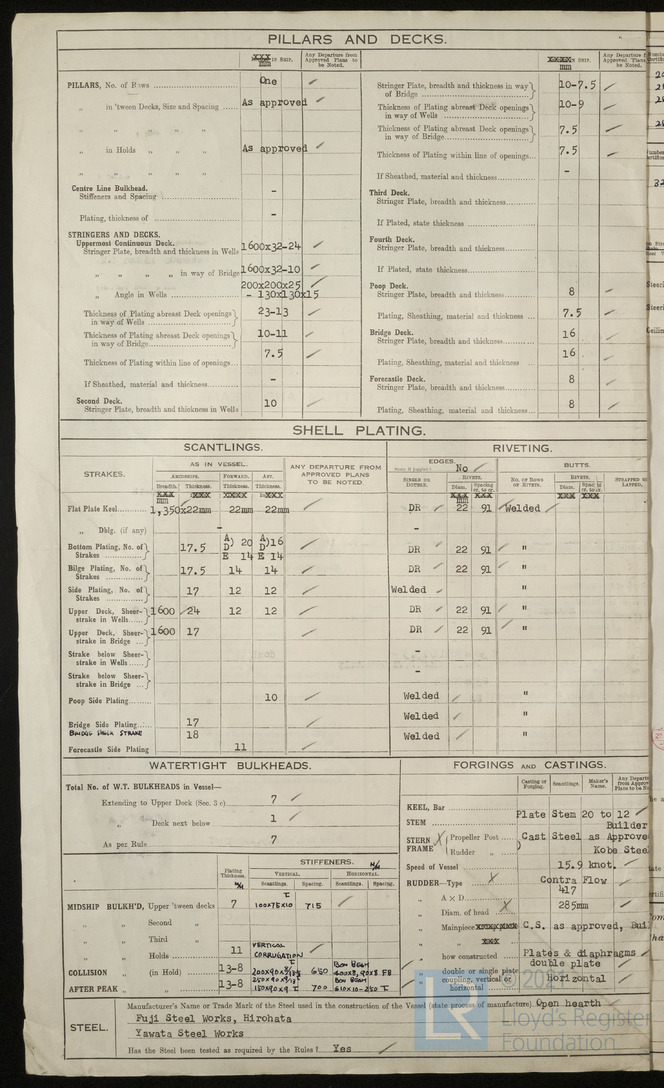 PILLARS AND DECKS.
XXX IN SHIP. mm
Any Departure from Approved Plans to be Noted.
PILLARS, No. of Rows One
„ in 'tween Decks, Size and Spacing As approved
„ „ „ „
„ in Holds „ „ As approved
„ „ „ „
Centre Line Bulkhead.
Stiffeners and Spacing -
Plating, thickness of -
STRINGERS AND DECKS.
Uppermost Continuous Deck.
Stringer Plate, breadth and thickness in Wells 1600x32-24
„ „ „ „ in way of Bridge 1600x32-10
„ Angle in Wells 200x200x25 - 130x130x15
Thickness of Plating abreast Deck openings in way of Wells 23-13
Thickness of Plating abreast Deck openings in way of Bridge 10-11
Thickness of Plating within line of openings 7.5
If Sheathed, material and thickness -
Second Deck.
Stringer Plate, breadth and thickness in Wells 10
XXXX IN SHIP. mm
Stringer Plate, breadth and thickness in way of Bridge 10-7.5
Thickness of Plating abreast Deck openings in way of Wells 10-9
Thickness of Plating abreast Deck openings in way of Bridge 7.5
Thickness of Plating within line of openings 7.5
If Sheathed, material and thickness -
Third Deck.
Stringer Plate, breadth and thickness
If Plated, state thickness
Fourth Deck.
Stringer Plate, breadth and thickness
If Plated, state thickness
Poop Deck.
Stringer Plate, breadth and thickness 8
Plating, Sheathing, material and thickness 7.5
Bridge Deck.
Stringer Plate, breadth and thickness 16
Plating, Sheathing, material and thickness 16
Forecastle Deck.
Stringer Plate, breadth and thickness 8
Plating, Sheathing, material and thickness 8
SHELL PLATING.
SCANTLINGS.
RIVETING.
STRAKES.
AS IN VESSEL.
AMIDSHIPS. FORWARD. AFT.
Breadth. Thickness. Thickness. Thickness.
XXX mm XXX XXXX XXX
ANY DEPARTURE FROM APPROVED PLANS TO BE NOTED.
EDGES. No
SINGLE OR DOUBLE.
RIVETS.
Diam. Spacing cr. to cr.
XXX mm XXX
BUTTS.
No. of Rows of Rivets.
RIVETS.
Diam. Spacing cr. to cr.
XXX XXX
STRAPPED OR LAPPED.
Flat Plate Keel 1,350x22mm 22mm 22mm DR 22 91 Welded
„ Dblg. (if any) - -
Bottom Plating, No. of Strakes 17.5 A) D) 20 E 14 A) D) 16 E 14 DR 22 91 "
Bilge Plating, No. of Strakes 17.5 14 14 DR 22 91 "
Side Plating, No. of Strakes 17 12 12 Welded "
Upper Deck, Sheerstrake in Wells 1600 24 12 12 DR 22 91 "
Upper Deck, Sheerstrake in Bridge 1600 17 DR 22 91 "
Strake below Sheerstrake in Wells -
Strake below Sheerstrake in Bridge -
Poop Side Plating 10 Welded "
Bridge Side Plating 17 Welded "
BRIDGE DECK STRAKE 18
Forecastle Side Plating 11 Welded "
WATERTIGHT BULKHEADS.
Total No. of W.T. BULKHEADS in Vessel—
Extending to Upper Deck (Sec. 3 c) 7
„ Deck next below 1
As per Rule 7
Plating Thickness.
STIFFENERS.
VERTICAL. HORIZONTAL.
Scantlings. Spacing. Scantlings. Spacing.
MIDSHIP BULKH'D, Upper 'tween decks 7 100x75x10 715
„ „ Second „
„ „ Third „
„ „ Holds 11 VERTICAL CORRUGATION
COLLISION „ (in Hold) 13-8 650
AFTER PEAK „ „ 13-8 700
FORGINGS AND CASTINGS.
Casting or Forging. Scantlings. Maker's Name.
KEEL, Bar
STEM Plate Stem 20 to 12 Builder
STERN FRAME Propeller Post Cast Steel as Approve
Rudder „ Kobe Stee
Speed of Vessel 15.9 knot.
RUDDER—Type Contra Flow
„ A x D 417
„ Diam. of head 285mm
„ Mainpiece XXXXXXX C.S. as approved, Buil
„ XXX
„ how constructed Plates & diaphragms
„ double or single plate double plate
„ coupling, vertical or horizontal Horizontal
STEEL.
Manufacturer's Name or Trade Mark of the Steel used in the construction of the Vessel (state process of manufacture). Open hearth
Fuji Steel Works, Hirohata
Yawata Steel Works
Has the Steel been tested as required by the Rules? Yes
LR
Lloyd's Register
Foundation